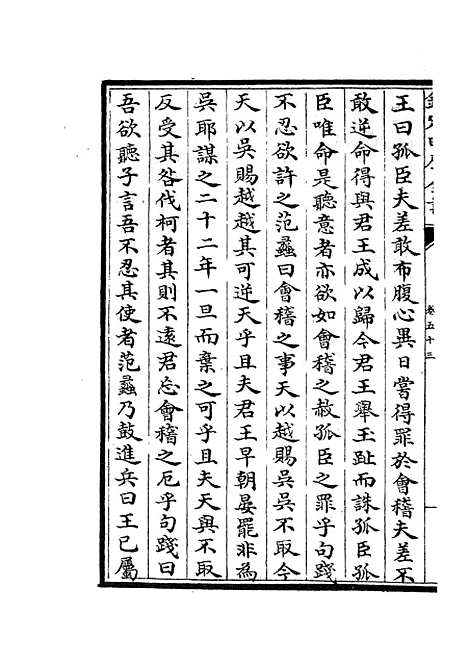 王曰孤臣夫差敢布腹心異日嘗得罪於會稽夫差不
敢逆命得與君王成以歸今君王舉玉趾而誅孤臣孤
臣唯命是聽意者亦欲如會稽之赦孤臣之罪乎句踐
不忍欲許之范蠡曰會稽之事天以越賜吳吳不取今
天以吳賜越越其可逆天乎且夫君王早朝晏罷非為
吳耶謀之二十二年一旦而棄之可乎且夫天與不取
反受其咎伐柯者其則不遠君忘會稽之厄乎句踐曰
吾欲聽子言吾不忍其使者范蠡乃鼓進兵曰王已屬
卷五十三